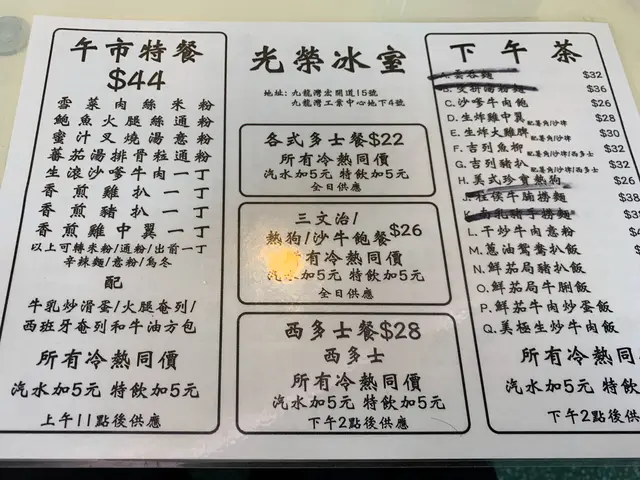 午市特餐
$44
雪菜肉絲米粉
鮑魚火腿絲通粉
蜜汁叉燒湯意粉
蕃茄湯排骨粒通粉
生滾沙嗲牛肉一丁
香煎雞扒一丁
香煎豬扒一丁
香煎雞中翼一丁
以上可轉米粉/通粉/出前一丁
辛辣麵/意粉/烏冬
配
牛乳炒滑蛋/火腿奄列/
西班牙奄列和牛油方包
所有冷熱同價
汽水加5元 特飲加5元
上午11點後供應
光榮冰室
地址: 九龍灣宏開道15號
九龍灣工業中心地下4號
各式多士餐$22
所有冷熱同價
汽水加5元 特飲加5元
全日供應
三文治/
熱狗/沙牛飽餐 $26
所有冷熱同價
汽水加5元 特飲加5元
全日供應
西多士餐$28
西多士
所有冷熱同價
汽水加5元 特飲加5元
下午2點後供應
下午茶
$32
B. 雙拼湯粉麵 $36
C. 沙嗲牛肉飽 $26
D. 生炸雞中翼 配薯角/沙律 $28
E. 生炸大雞髀 配薯角/沙律 $30
F. 吉列魚柳 配薯角/沙律/西多士 $32
G. 吉列豬扒 配薯角/沙律/西多士 $32
H. 美式珍寶熱狗 $26
J. 柱侯牛腩撈麵 $38
K. 南乳豬手撈麵 $35
L. 干炒牛肉意粉
M. 蔥油鴛鴦扒飯
N. 鮮茄局豬扒飯
O. 鮮茄局牛脷飯
P. 鮮茄牛肉炒蛋飯
Q. 美極生炒牛肉飯
所有冷熱同
汽水加5元 特飲加5
下午2點後供